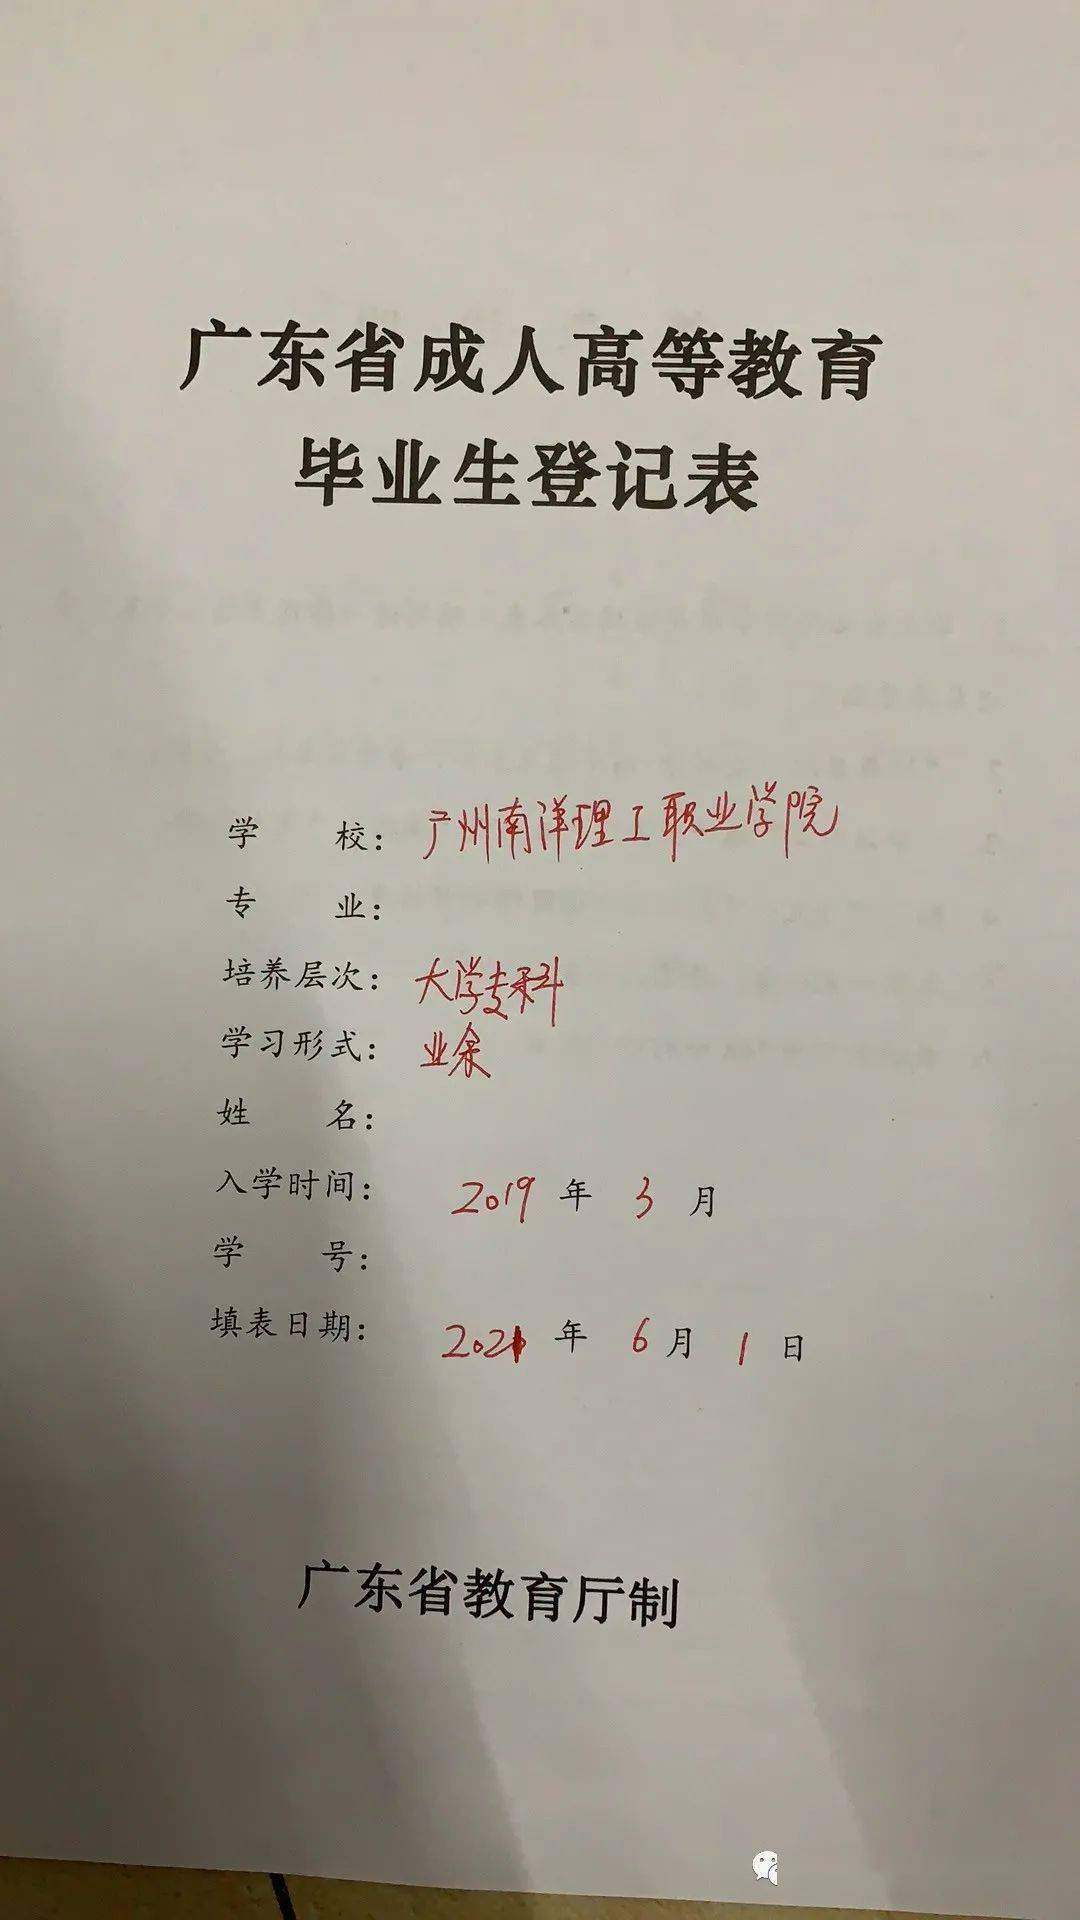 广东省成人高等教育
毕业生登记表
学 校：广州南洋理工职业学院
专 业：
培养层次：大学专科
学习形式：业余
姓 名：
入学时间：2019 年 3 月
学 号：
填表日期：2021 年 6 月 1 日
广东省教育厅制